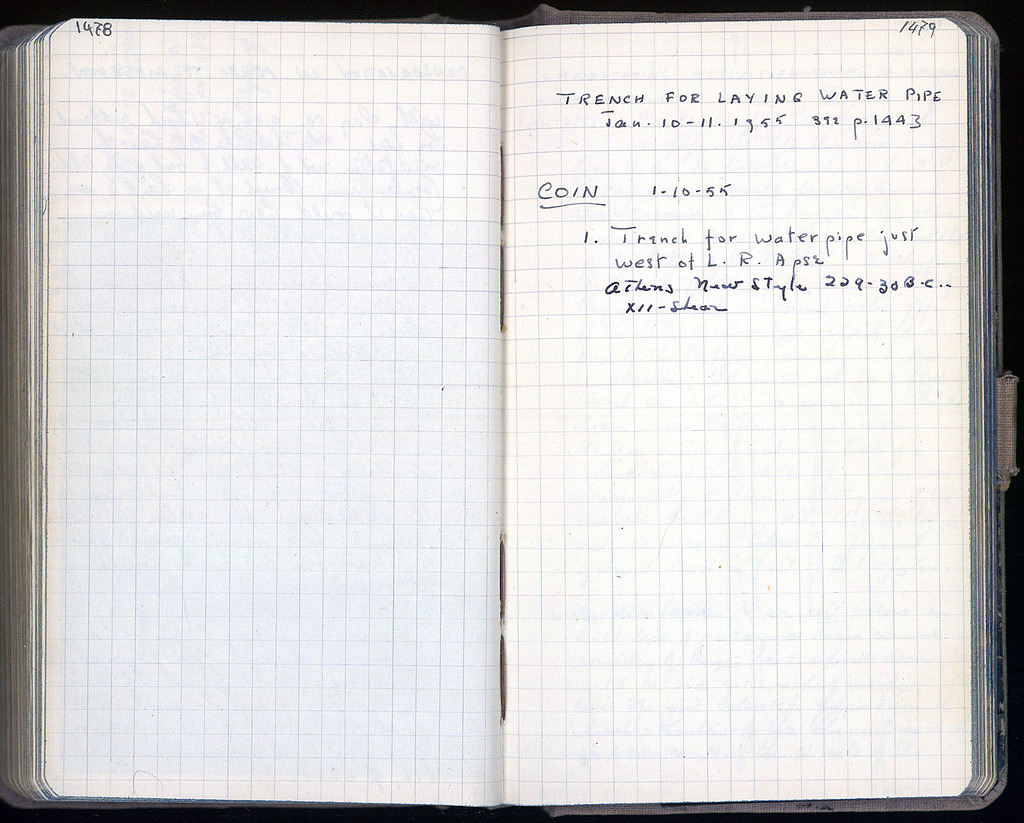 1478
1479
TRENCH FOR LAYING WATER PIPE
Jan. 10-11. 1955 see p. 1443
COIN 1-10-55
1. Trench for water pipe just
west of L. R. Apse
Athens New Style 229-30 B.C..
XII - Shear